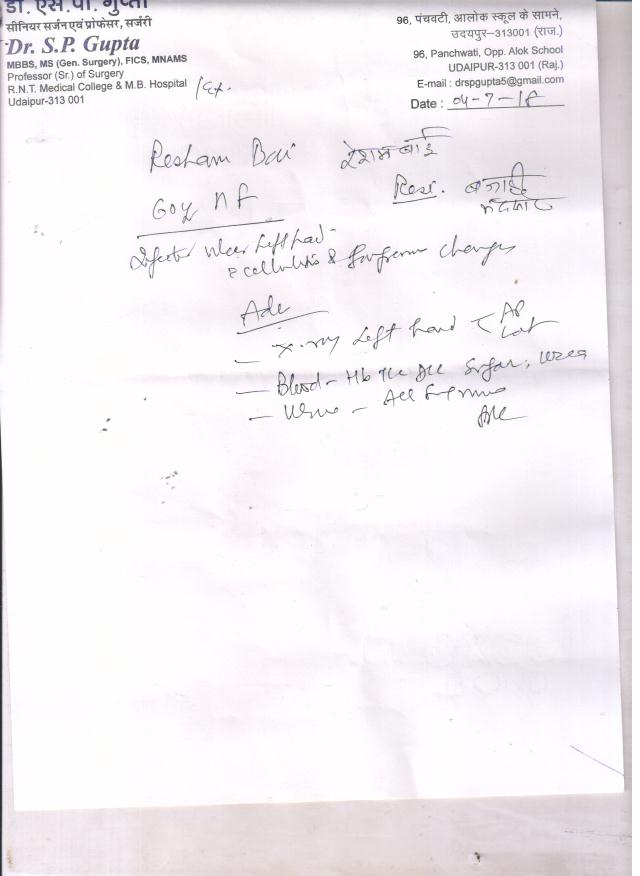 डॉ. एस.पी. गुप्ता
सीनियर सर्जन एवं प्रोफेसर, सर्जरी
Dr. S.P. Gupta
MBBS, MS (Gen. Surgery), FICS, MNAMS
Professor (Sr.) of Surgery
R.N.T. Medical College & M.B. Hospital /Ex.
Udaipur-313 001
96, पंचवटी, आलोक स्कूल के सामने,
उदयपुर–313001 (राज.)
96, Panchwati, Opp. Alok School
UDAIPUR-313 001 (Raj.)
E-mail : drspgupta5@gmail.com
Date : 04-7-18
Resham Bai रेशम बाई
60y Resi.
Infected Ulcer Left hand
cellulitis & gangrenous changes
Adv
— X-ray Left hand < AP
Lat
— Blood - Hb TLC DLC Sugar, Urea
— Urine -